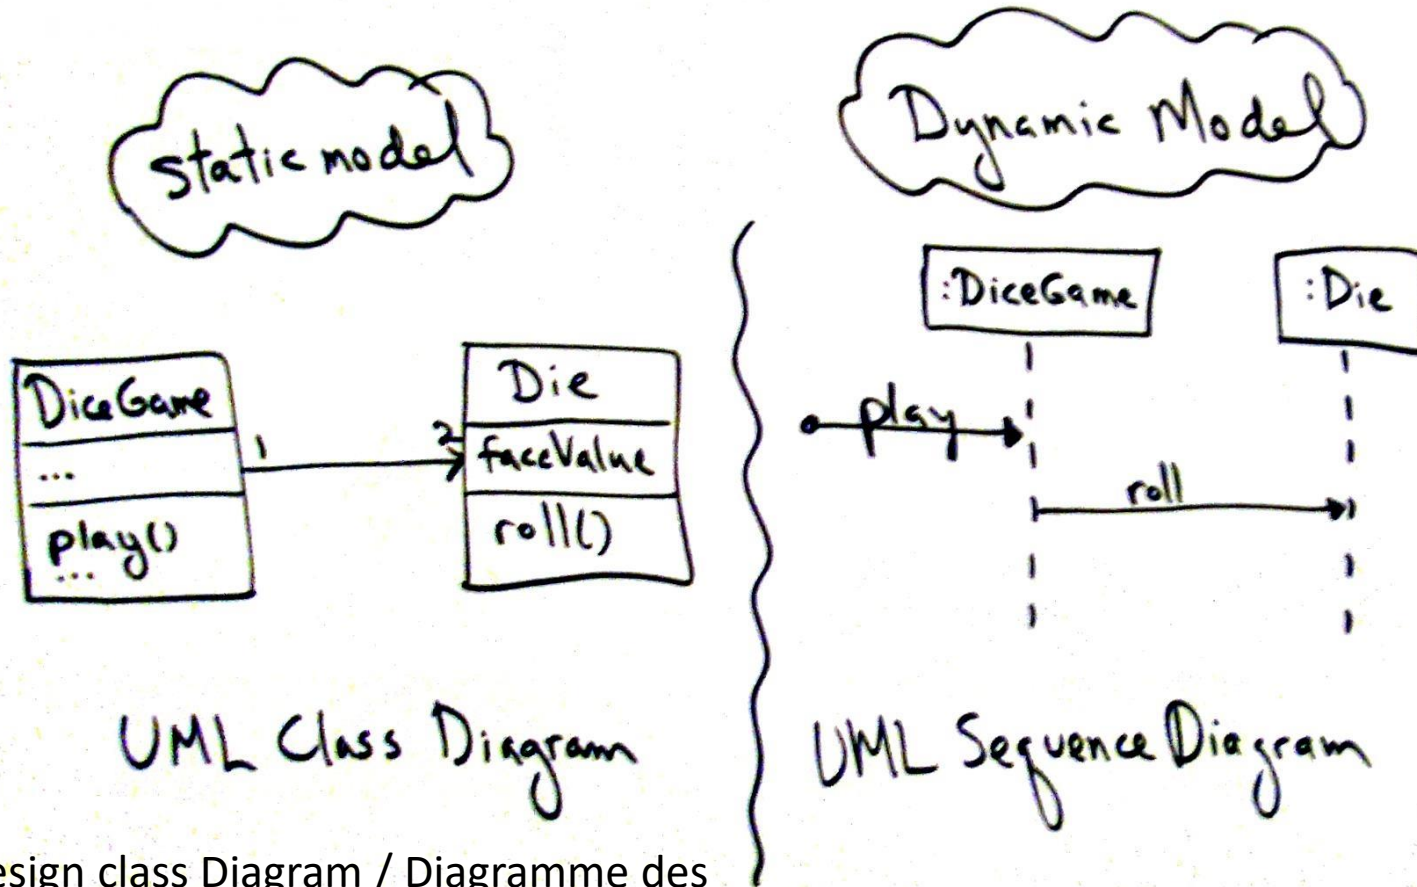 static model
Dynamic Model
DiceGame
...
play()
...
1
2
Die
faceValue
roll()
:DiceGame
:Die
play
roll
UML Class Diagram
UML Sequence Diagram
esign class Diagram / Diagramme des